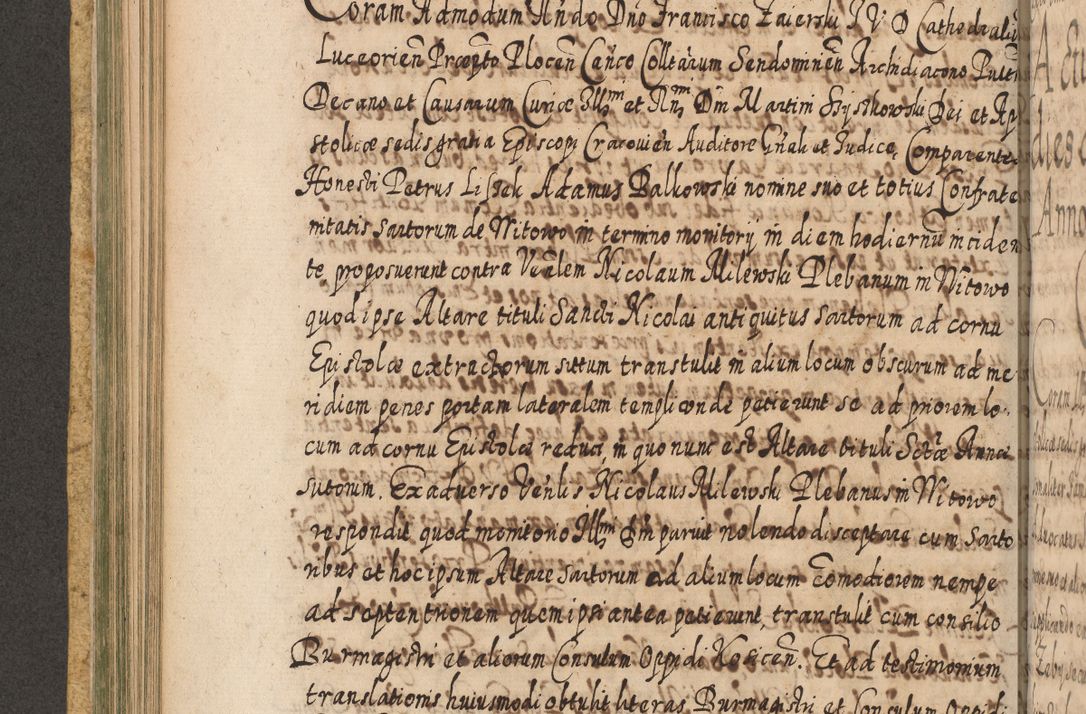 Coram Admodum Rndo Dno Francisco Zaierski I V D Cathedraliũ
Luceorieñ Præpto Plocen̄ Cañco Colltarum Sendomirien̄ Archidiacono Pult
Decano et Causarum Curiæ Illmi et Rmi Dm̄ Martini Szyszkowski Dei et Ap
stolicæ sedis gratia Episcopi Cracovien̄ Auditore Gn̄ali et Judice, Comparentes
Honesti Petrus Lissek Adamus Balkowski nomine suo et totius Confrate
rnitatis Sartorum de Witowo in termino monitorij in diem hodiernũ inciden
te proposuerunt contra Vn̄lem Nicolaum Milewski Plebanum in Witowo
quod ipse Altare tituli Sancti Nicolai antiquitus Sartorum ad cornu
Epistolæ extractorum situm transtulit in alium locum obscurum ad me
ridiem penes portam lateralem templi unde petierunt se ad priorem lo-
cum ad cornu Epistolæ reduci, in quo nunc est Altare tituli Sctæ Annæ
Sutorum. Ex adverso Ven̄lis Nicolaus Milewski Plebanus in Witowo
respondit quod monitorio Illmi Dm̄ paruit nolendo disceptare cum Sarto
ribus et hoc ipsum Altare Sartorum ad alium locum com̄odiorem nempe
ad septentrionem quem ipsi antea petierunt, transtulit cum consilio
Burmagistri et aliorum Consulum Oppidi Kosicen̄. Et ad testimonium
translationis huiusmodi obtulit literas Burmagistri et Consulum Oppidi